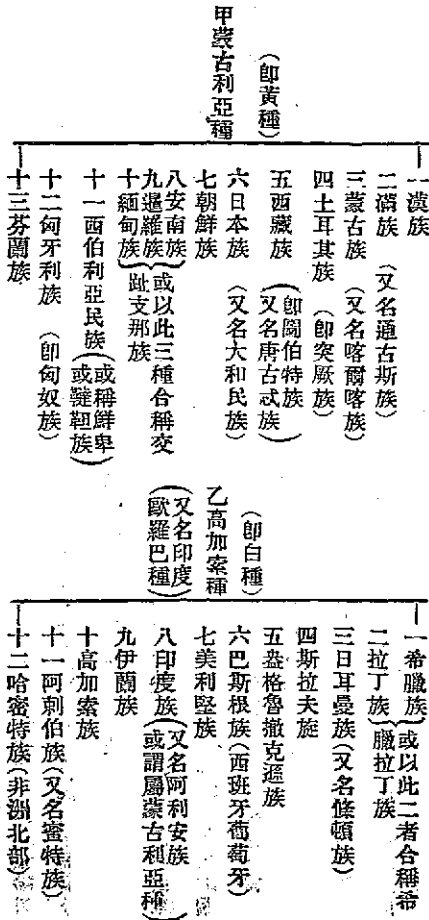 甲蒙古利亞種
(即黃種)
一漢族
二滿族 (又名通古斯族)
三蒙古族 (又名喀爾喀族)
四土耳其族 (即突厥族)
五西藏族 (即圖伯特族
又名唐古忒族)
六日本族 (又名大和民族)
七朝鮮族
八安南族
九暹羅族
十緬甸族
或以此三種合稱交
趾支那族
十一西伯利亞民族 (或稱鮮卑
或韃靼族)
十二匈牙利族 (即匈奴族)
十三芬蘭族
乙高加索種
(即白種)
(又名印度
歐羅巴種)
一希臘族
二拉丁族
或以此二者合稱希
臘拉丁族
三日耳曼族 (又名條頓族)
四斯拉夫族
五盎格魯撒克遜族
六巴斯根族 (西班牙葡萄牙)
七美利堅族
八印度族 (又名阿利安族
或謂屬蒙古利亞種)
九伊蘭族
十高加索族
十一阿剌伯族 (又名蜜特族)
十二哈蜜特族 (非洲北部)